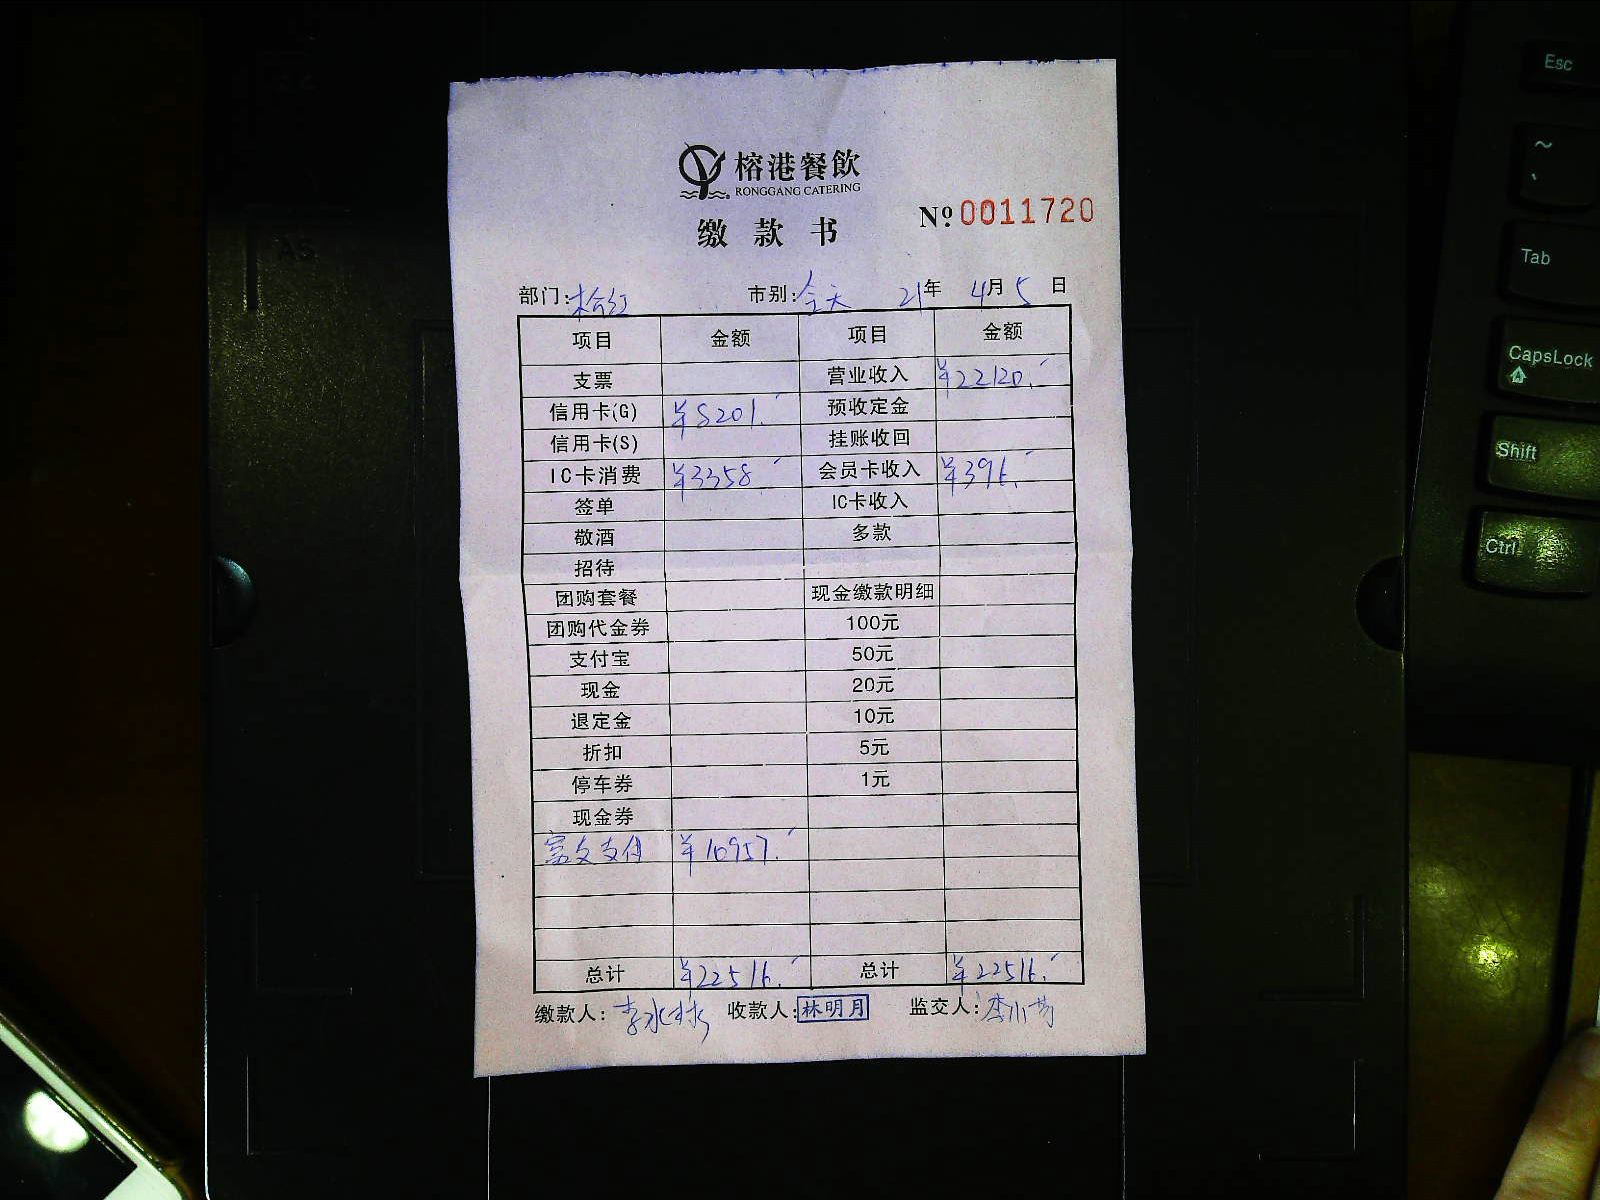 榕港餐飲
RONGGANG CATERING
缴款书
№ 0011720
部门: 市别:全天 21年 4月 5日
项目 金额 项目 金额
支票 营业收入 ¥22120.
信用卡(G) ¥8201. 预收定金
信用卡(S) 挂账收回
IC卡消费 ¥3358. 会员卡收入 ¥396.
签单 IC卡收入
敬酒 多款
招待
团购套餐 现金缴款明细
团购代金券 100元
支付宝 50元
现金 20元
退定金 10元
折扣 5元
停车券 1元
现金券
富友支付 ¥10957.
总计 ¥22516. 总计 ¥22516.
缴款人: 收款人:林明月 监交人:
Esc
~
Tab
CapsLock
Shift
Ctrl
A5